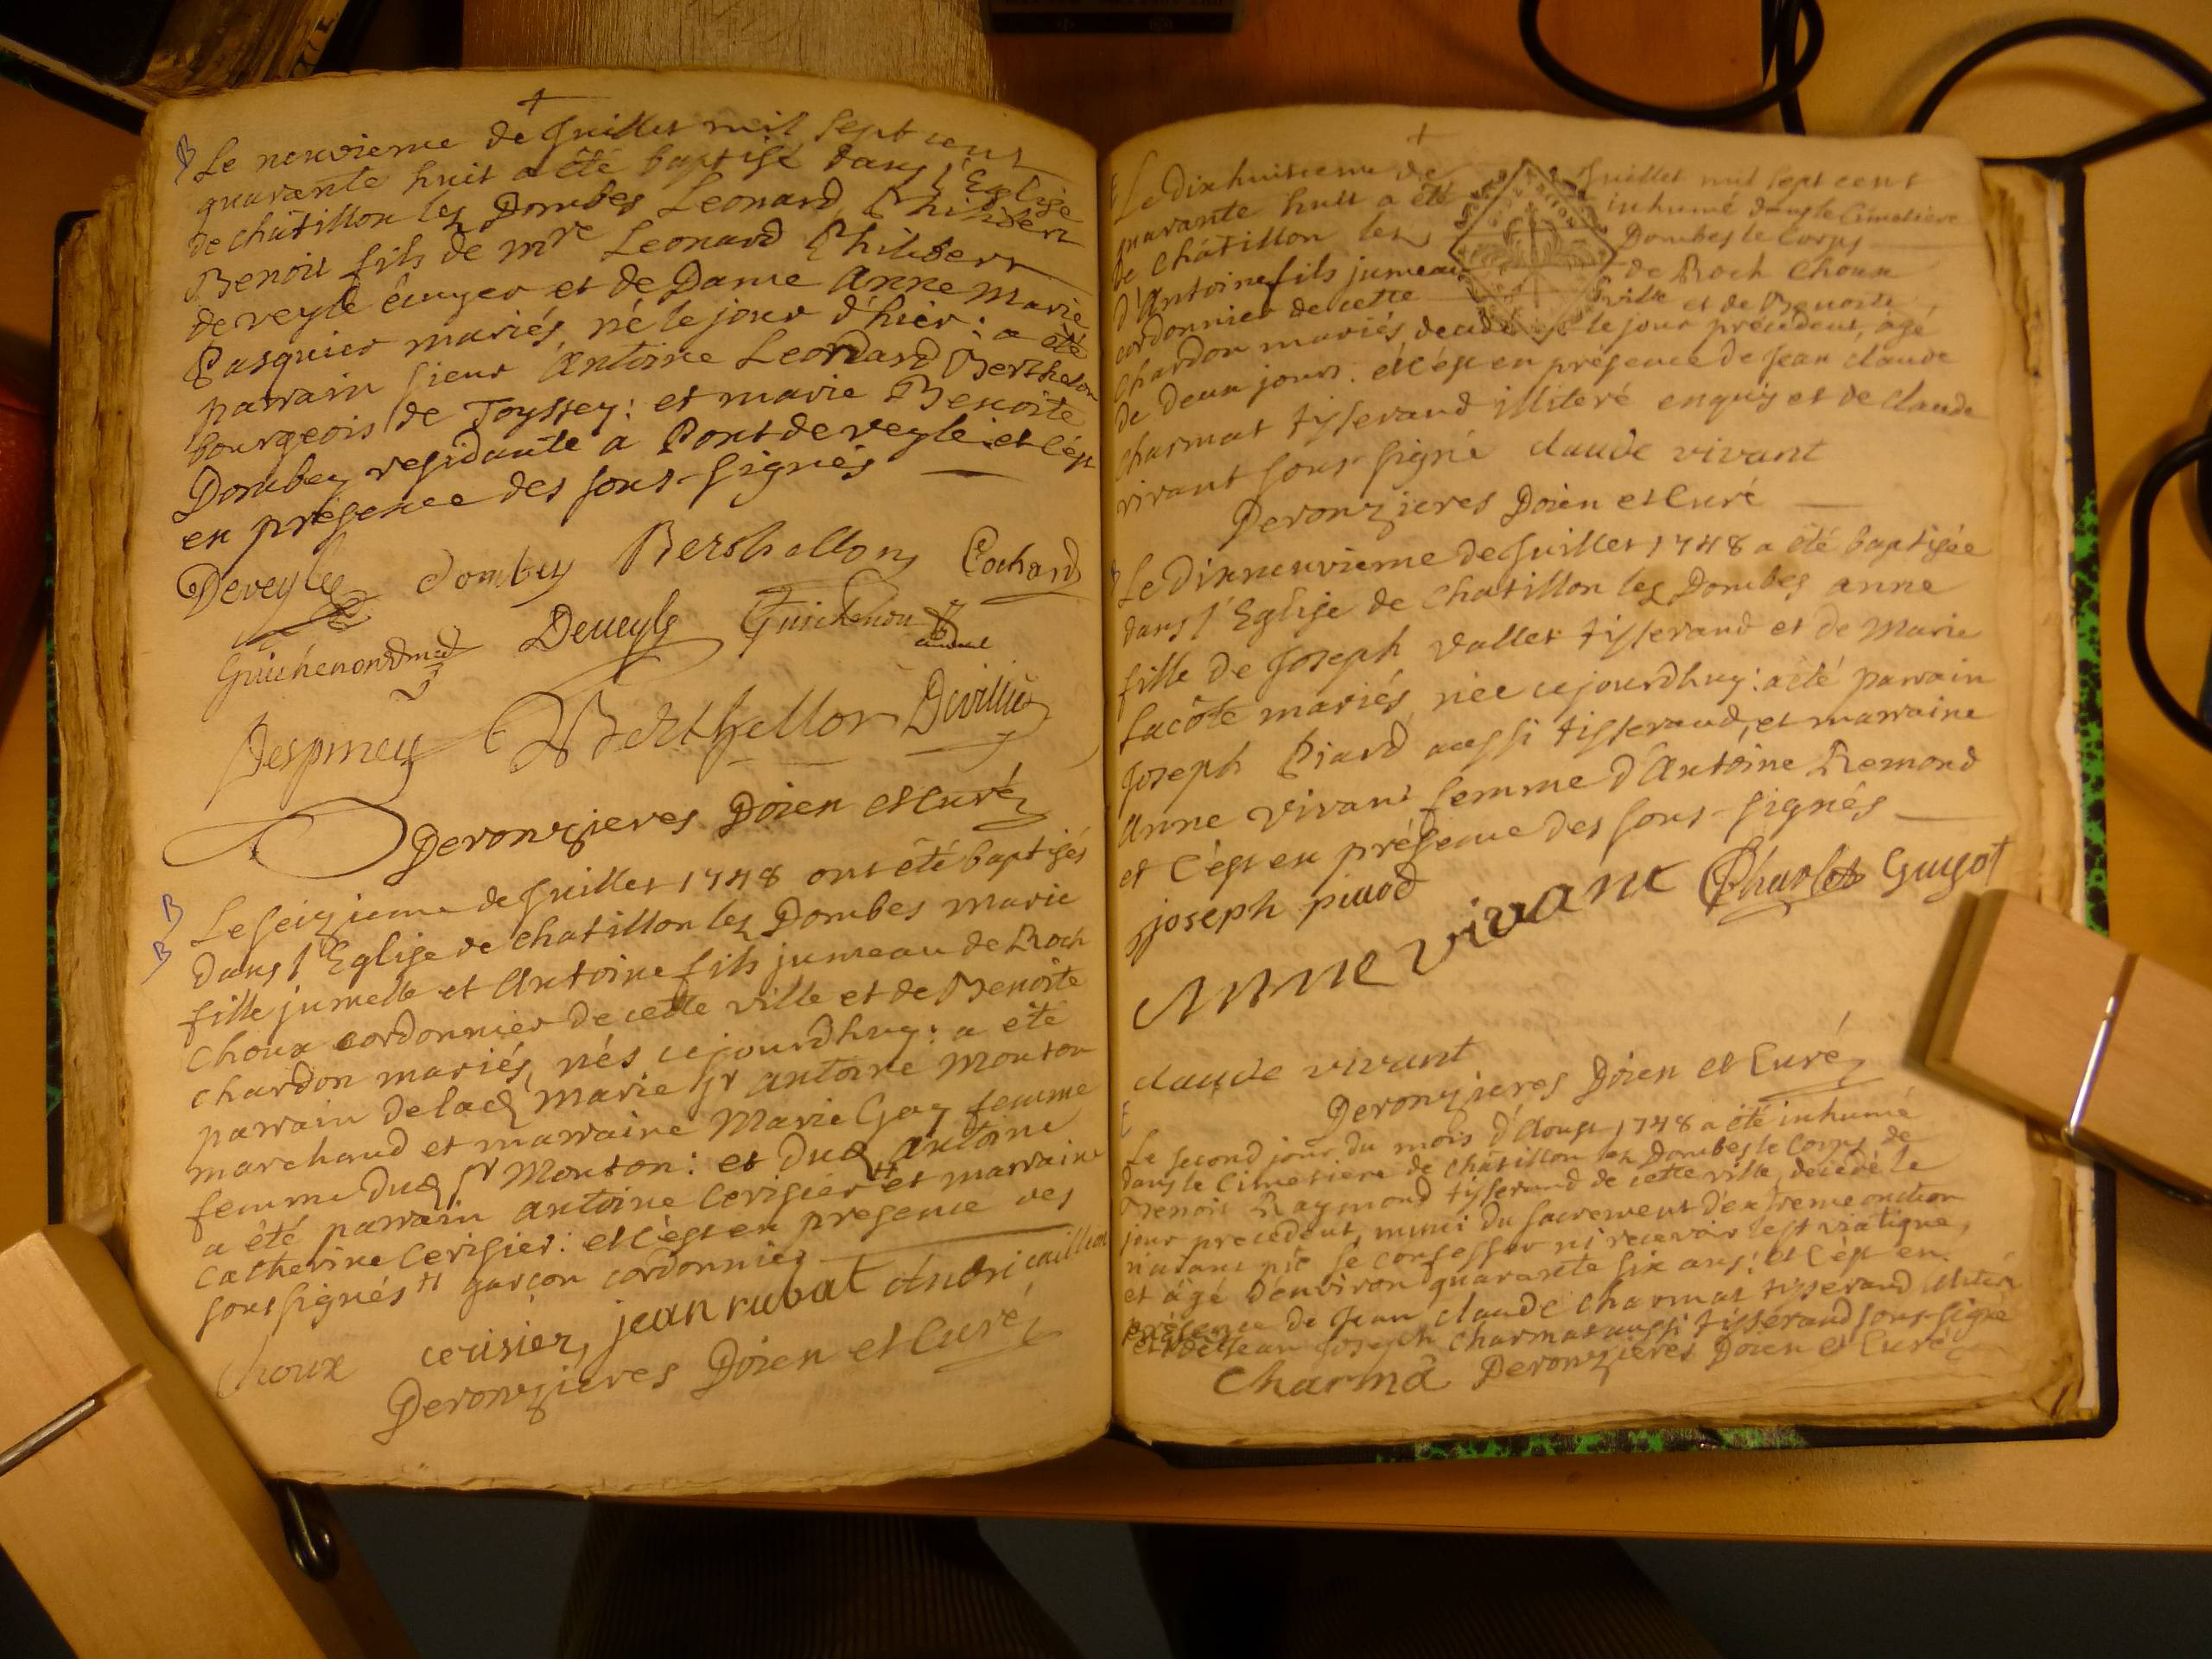 B Le neuvieme de Juillet mil sept cent
quarante huit a êté baptisé dans l'Eglise
de châtillon les Dombes Leonard Philibert
Benoit fils de mre Leonard Philibert
de veyle êcuyer et de Dame Anne Marie
Pasquier mariés, né le jour d'hier: a êté
parrain sieur Antoine Leonard Berthelon
bourgeois de Toyssey: et marie Benoite
Dombey residante a Pont de veyle: et c'ést
en présence des sous-signés
Deveyle dombey Berthellon Cochard
Guichenon Deveyle Guichenon
Despiney Berthellon Devillie
Deronzieres Doien et Curé
B Le seizieme de Juillet 1748 ont êté baptisés
B dans l'Eglise de chatillon les Dombes marie
fille jumelle et Antoine fils jumeau de Roch
Choux cordonnier de cette ville et de Benoite
chardon mariés, nés cejourdhuy: a êté
parrain de lad marie sr antoine Monton
marchand et marraine Marie Gay femme
femme dud sr Monton: et dud antoine
a été parrain antoine Cerisier ++ et marraine
Catherine Cerisier: et c'ést en presence des
sous signés ++ garçon cordonnier
Choux cerisier, jean rubat
Deronzieres Doien et Curé
Le Dixhuitieme de Juillet mil sept cent
quarante huit a êté inhumé dans le Cimetiere
de châtillon les Dombes le Corps
d'Antoine fils jumeau de Roch Choux
cordonnier de cette ville et de Benoite
Chardon mariés décédé le jour précédent, agé
de deux jours: et c'ést en présence de Jean claude
charmat tisserand illiteré enquis et de claude
vivant sous-signé claude vivant
Deronzieres Doien et Curé
B Le Dixneuvieme de Juillet 1748 a êté baptisée
dans l'Eglise de Chatillon les Dombes anne
fille de Joseph vallet tisserand et de Marie
Lacôte mariés, née cejourdhuy: a êté parrain
Joseph Piard aussi tisserand, et marraine
Anne Vivant femme d'Antoine Remond
et c'ést en présence des sous-signés
joseph piard Anne vivant Charles Guyot
claude vivant
Deronzieres Doien et Curé
E
Le second jour du mois d'Aoust 1748 a êté inhumé
dans le Cimetiere de châtillon les Dombes le Corps de
Benoit Raymond tisserand de cette ville, décédé le
jour precedent, muni du sacrement d'extreme onction
n'aiant pû se confesser ni recevoir le st viatique,
et âgé d'environ quarante six ans: et c'ést en
présence de Jean claude charmat tisserand illiteré
et de Jean Joseph Charmat aussi tisserand sous-signé
Charma Deronzieres Doien et Curé